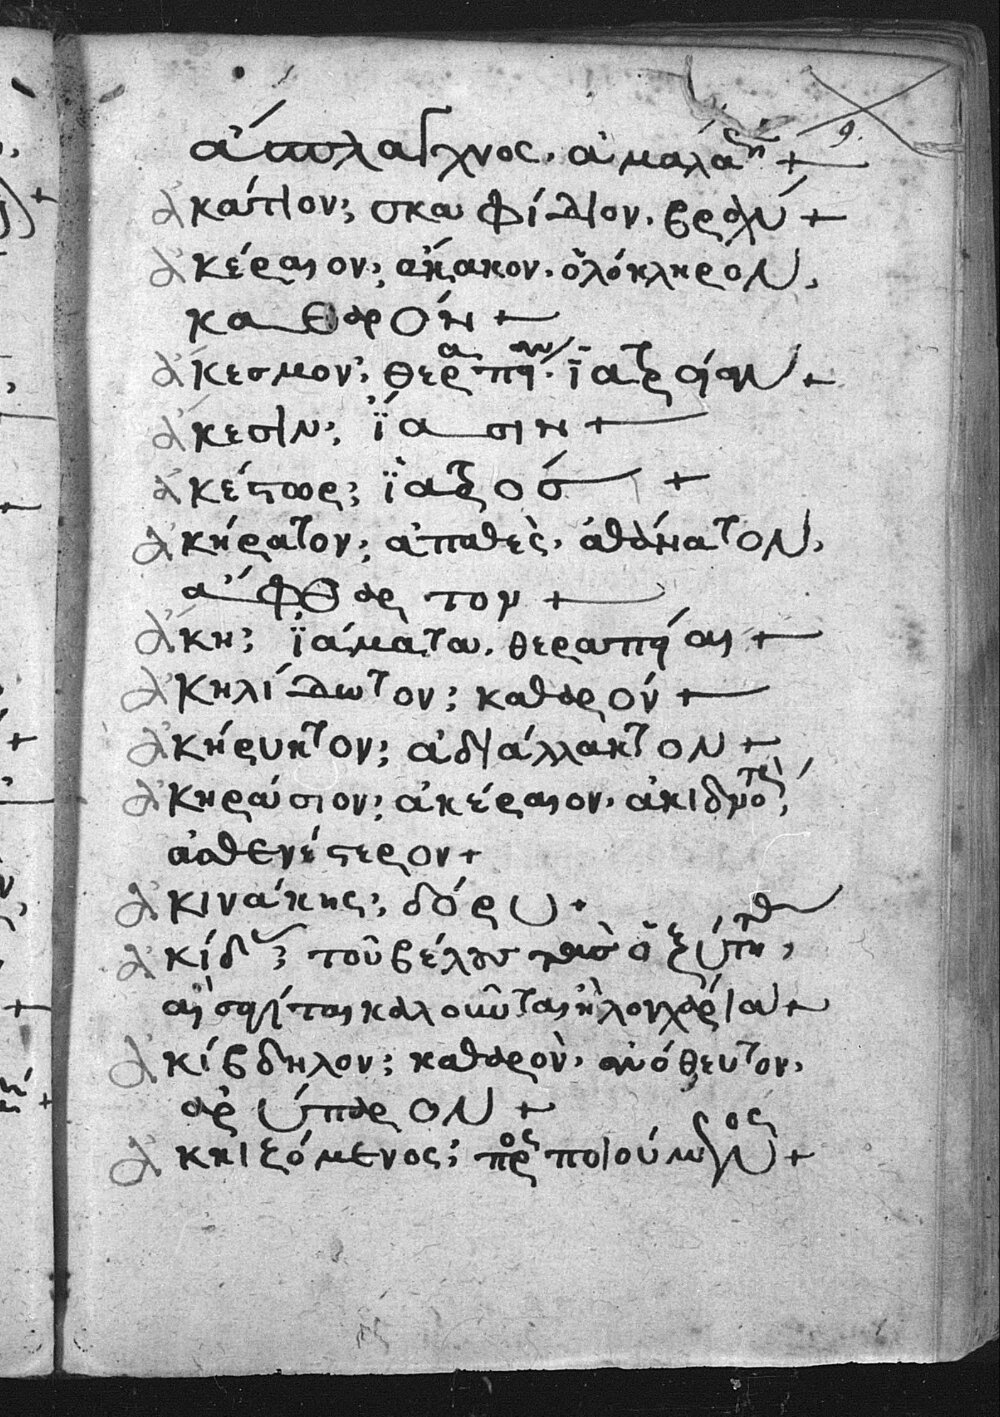 ἄσπλαγχνος, ἀμάλα
ἀκάτιον; σκαφίδιον,
ἀκέραιον; ἄκακον, ὁλόκληρον,
καθαρόν +
ἄκεσμον; θεραπεί ἰατρείαν +
ἄκεσιν; ἴασιν +
ἀκέστωρ; ἰατρός +
ἀκήρατον; ἀπαθὲς, ἀθάνατον,
ἄφθαρτον +
ἄκη; ἰάματα, θεραπείαι +
ἀκηλίδωτον; καθαρόν +
ἀκήρυκτον; ἀδιάλλακτον +
ἀκηράσιον; ἀκέραιον, ἀκιδνότε,
ἀσθενέστερον +
ἀκινάκης; δόρυ.
ἀκίδ; τοῦ βέλους ὀξύτη,
αἱ σαγίται καλοῦνται ἢ λογχάρια +
ἀκίβδηλον; καθαρὸν, ἀνόθευτον,
ἀρύπαρον +
ἀκκιζόμενος; προσποιούμενος +